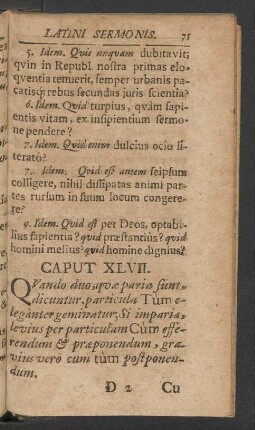 LATINI SERMONIS. 75
5. Idem. Quis unquam dubitavit;
qvin in Republ. nostra primas elo-
qventia tenuerit, semper urbanis pa-
catisq; rebus secundas juris scientia?
6. Idem. Qvid turpius, qvàm sapi-
entis vitam, ex insipientium sermo-
ne pendere?
7. Idem. Quid enim dulcius ocio li-
terato?
7. Idem. Quid est autem seipsum
colligere, nihil dissipatas animi par-
tes rursum in suum locum congere-
re?
9. Idem. Quid est per Deos, optabi-
lius sapientia? quid præstantius? quid
homini melius? quid homine dignius?
CAPUT XLVII.
QVando duo, qvæ paria sunt,
dicuntur, particula Tùm e-
legánter geminatur; Si imparia,
levius per particulam Cùm effe-
rendum & præponendum, gra-
vius verò cum tùm postponen-
dum.
D 2 Cu